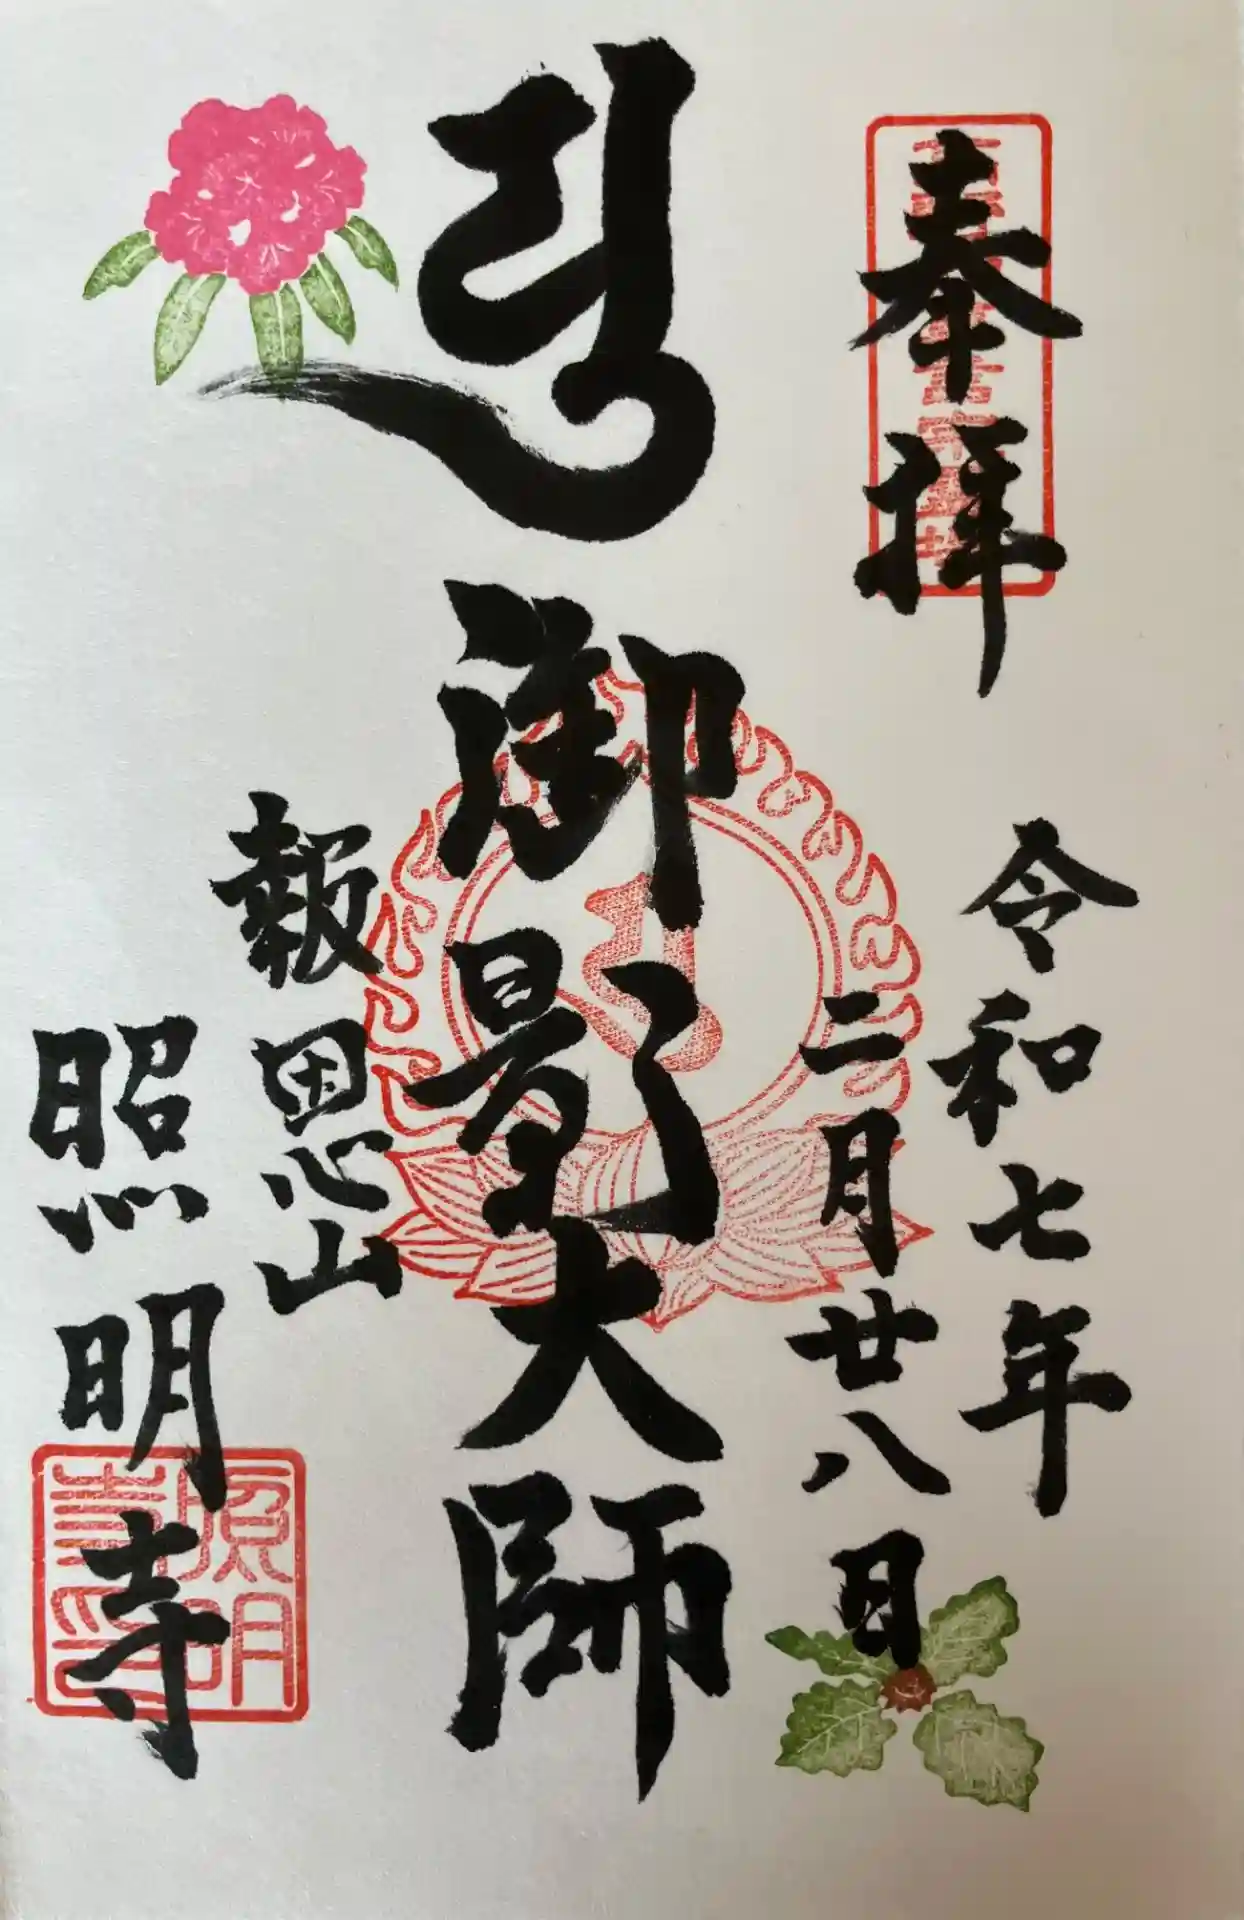 奉拝
令和七年
二月廿八日
𑖮𑖿𑖨𑖱𑖾
御影大師
報恩山
照明寺
照明寺印